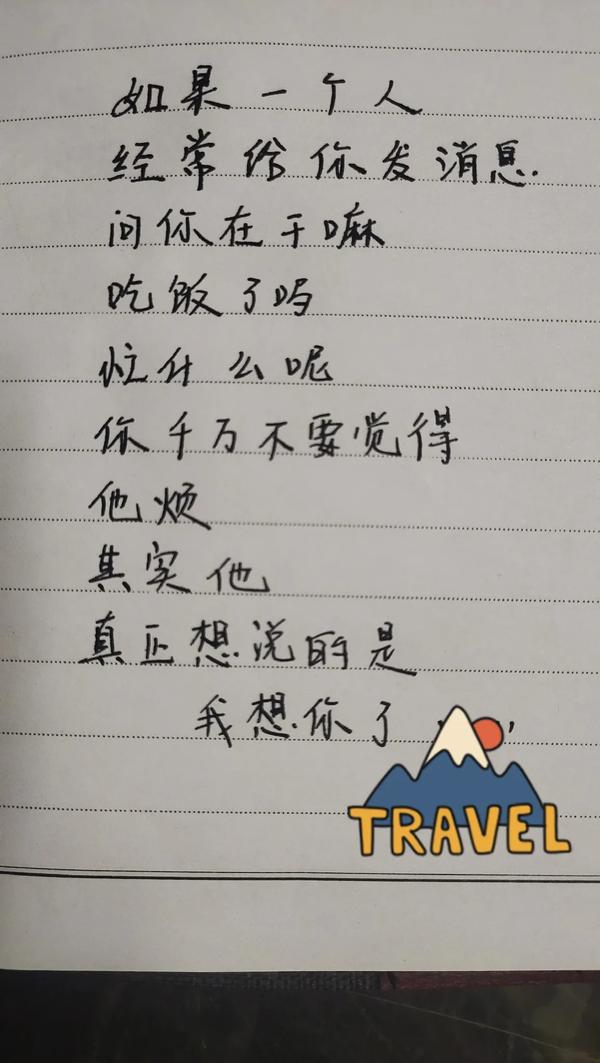 如果一个人
经常给你发消息.
问你在干嘛
吃饭了吗
忙什么呢
你千万不要觉得
他烦
其实他
真正想说的是
我想你了
TRAVEL